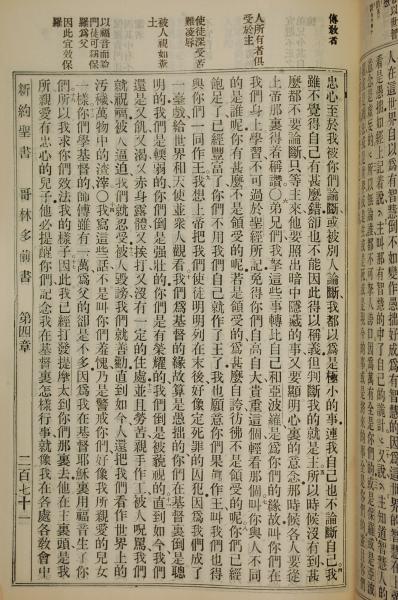 人在這世界自以爲有智慧倒不如變作愚拙好成爲有智慧的因爲這世界的智慧在上
看是愚拙如經上記着說主叫那有智慧的中了自己的詭計又說主知道智慧人的
傳教者
人所有者俱
受於主
使徒深受苦
難凌辱
被人視如糞
土
以福音而論
門徒可稱保
羅爲父
因此宜效保
羅
忠心至於我被你們論斷或被別人論斷我都以爲是極小的事連我自己也不論斷自己我
雖不覺得自己有甚麼錯卻也不能因此得以稱義但判斷我的就是主所以時候沒有到甚
麼都不要論斷只等主來他要照出暗中隱藏的事又要顯明心裏的意念那時候各人要從
上帝那裏得着稱讚○弟兄們我拏這些事轉比自己和亞波羅是爲你們的緣故叫你們在
我們身上學習不可過於聖經所記免得你們自高自大貴重這個輕看那個叫你與人不同
的是誰呢你有甚麼不是領受的呢若是領受的爲甚麼自誇彷彿不是領受的呢你們已經
飽足了已經豐富了你們不用我們自己就作了王了我也願意你們果眞作王叫我們也得
與你們一同作王我想上帝把我們使徒明明列在末後好像定死罪的囚犯因爲我們成了
一臺戲給世界和天使並衆人觀看我們爲基督的緣故算是愚拙的你們在基督裏倒是聰
明的我們是輭弱的你們倒是强壯的你們是有榮耀的我們倒是被藐視的直到如今我們
還是又飢又渴又赤身露體又挨打又沒有一定的住處並且勞苦親手作工被人咒罵我們
就祝福被人逼迫我們就忍受被人毀謗我們就善勸直到如今人還把我們看作世界上的
汚穢萬物中的渣滓○我寫這些話不是叫你們羞愧乃是警戒你們好像我所親愛的兒女
一樣你們學基督的師傅雖有一萬爲父的卻是不多因爲我在基督耶穌裏用福音生了你
們所以我求你們效法我的樣子因此我已經打發提摩太到你們那裏去他在主裏頭是我
所親愛有忠心的兒子他必提醒你們記念我在基督裏怎樣行事就像我在各處各敎會中
新約聖書 哥林多前書 第四章 二百七十